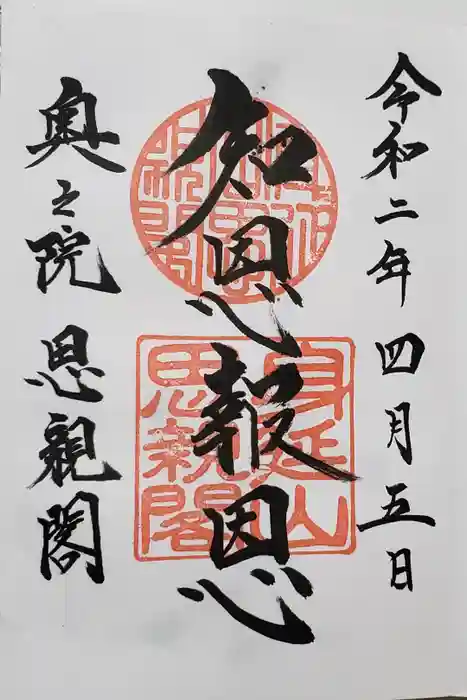 令和二年四月五日
知恩報恩
奥之院 思親閣
身延山
思親閣